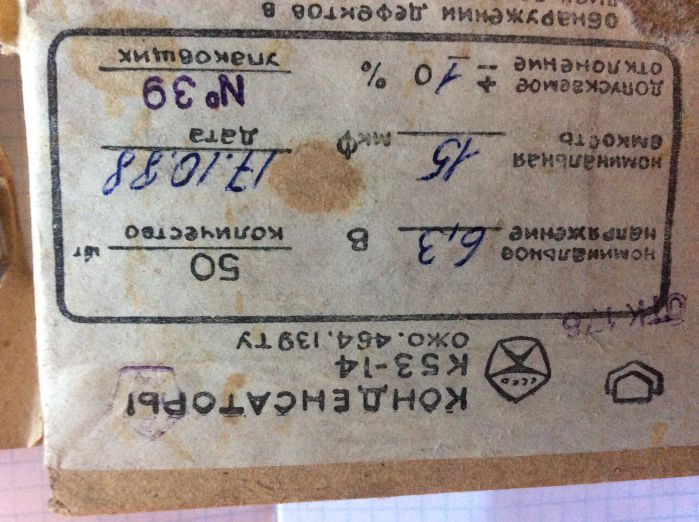 КОНДЕНСАТОРЫ
К53-14
ОЖО.464.139ТУ
СССР
ОТК 176
НОМИНАЛЬНОЕ НАПРЯЖЕНИЕ 6,3 В
50 шт
КОЛИЧЕСТВО
НОМИНАЛЬНАЯ ЕМКОСТЬ 15 МКФ
17.10.88
ДАТА
ДОПУСКАЕМОЕ ОТКЛОНЕНИЕ ± 10 %
№39
УПАКОВЩИК
ОБНАРУЖЕНИИ ДЕФЕКТОВ В